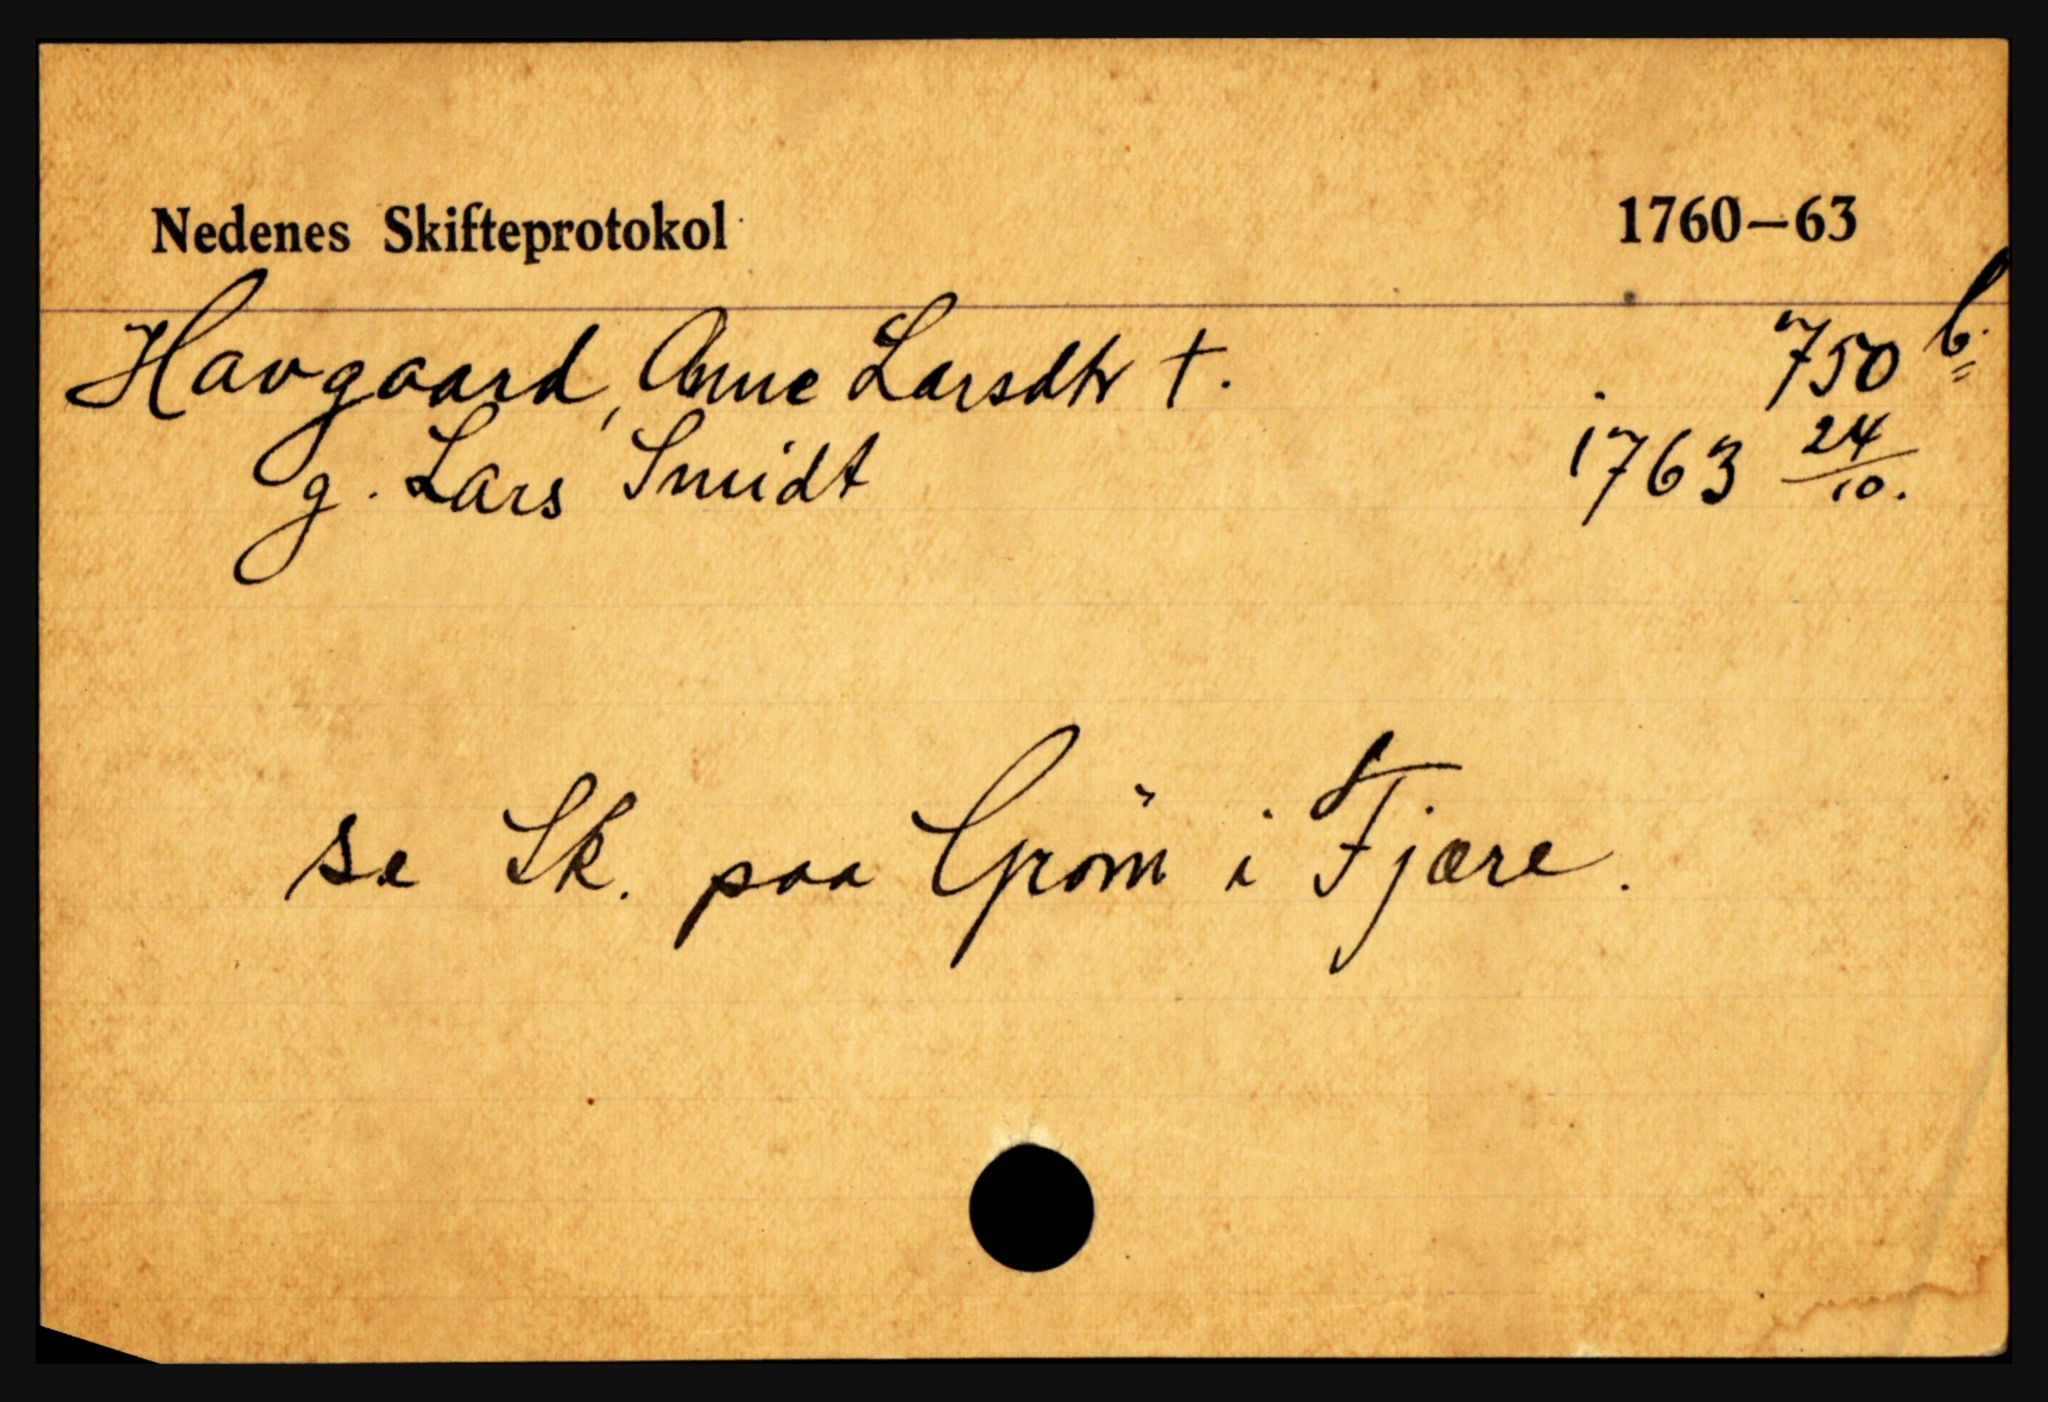 Nedenes Skifteprotokol 1760–63
Havgaard, Anne Larsdtr †. 750 b.
g. Lars Smidt 1763 24/10.
se Sk. paa Gröm i Fjære.